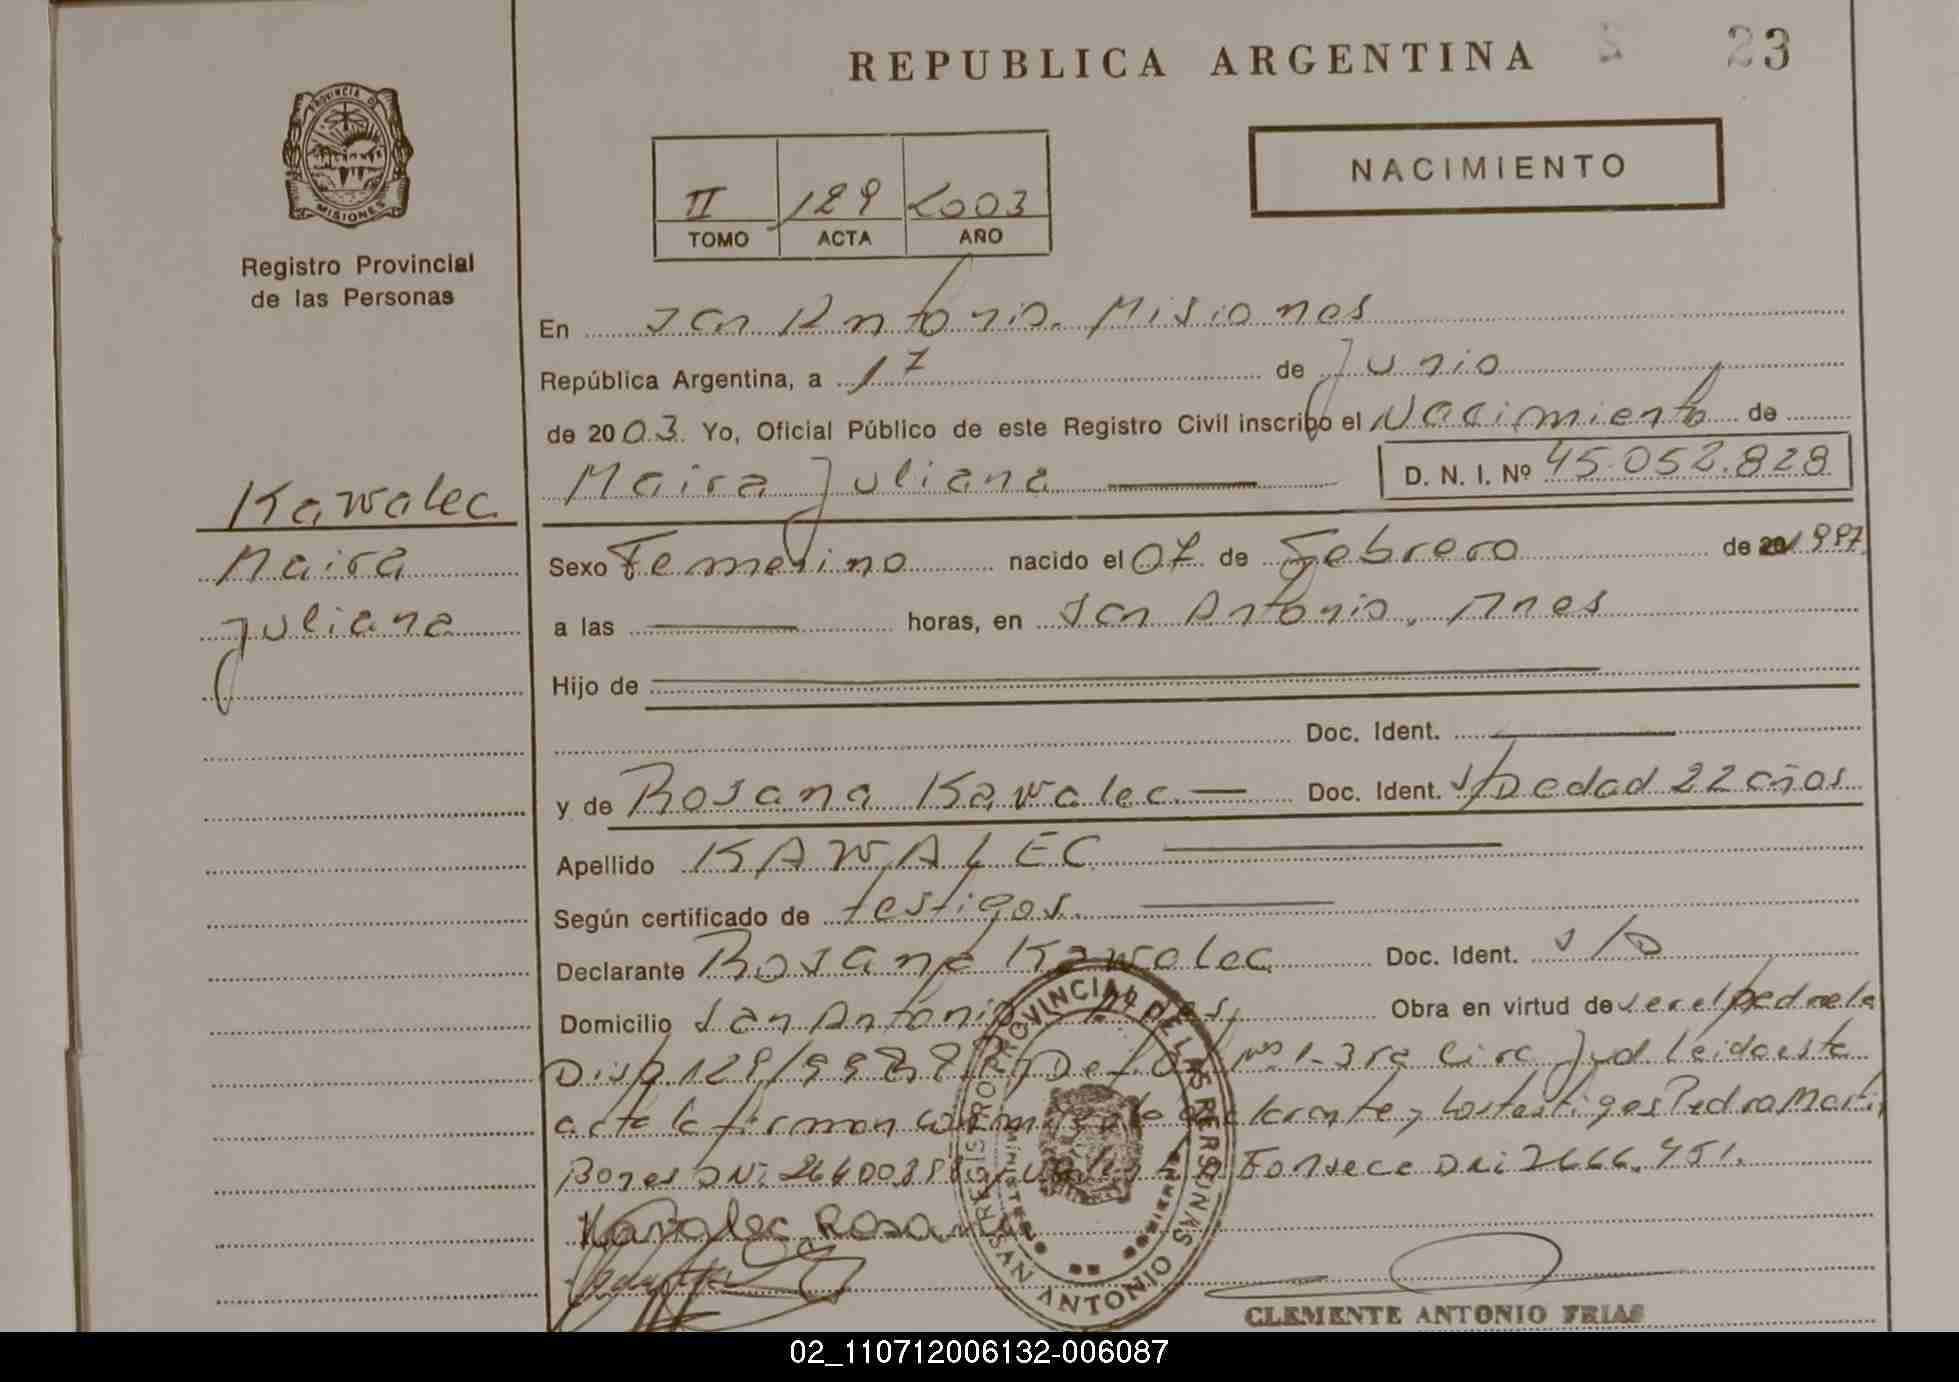 REPUBLICA ARGENTINA
23
PROVINCIA DE
MISIONES
Registro Provincial
de las Personas
NACIMIENTO
II 129 2003
TOMO ACTA AÑO
En San Antonio. Misiones
República Argentina, a 17 de Junio
de 2003. Yo, Oficial Público de este Registro Civil inscribo el Nacimiento de
Maira Juliana D. N. I. Nº 45.052.828
Kawalec
Maira
Juliana
Sexo Femenino nacido el 07 de Febrero de 20 1997
a las horas, en San Antonio, Mnes
Hijo de
Doc. Ident.
y de Rosana Kawalec Doc. Ident. s/D edad 22 años
Apellido KAWALEC
Según certificado de testigos.
Declarante Rosana Kawalec Doc. Ident. s/D
Domicilio San Antonio Mnes, Obra en virtud de
Disp. 129/99 Nº 1-3ra Circ Jud Leida esta
acta la firman declarante y los testigos Pedro
DNi Fonseca DNi
Kawalec Rosana
REGISTRO PROVINCIAL DE LAS PERSONAS
SAN ANTONIO
CLEMENTE ANTONIO FRIAS
02_110712006132-006087